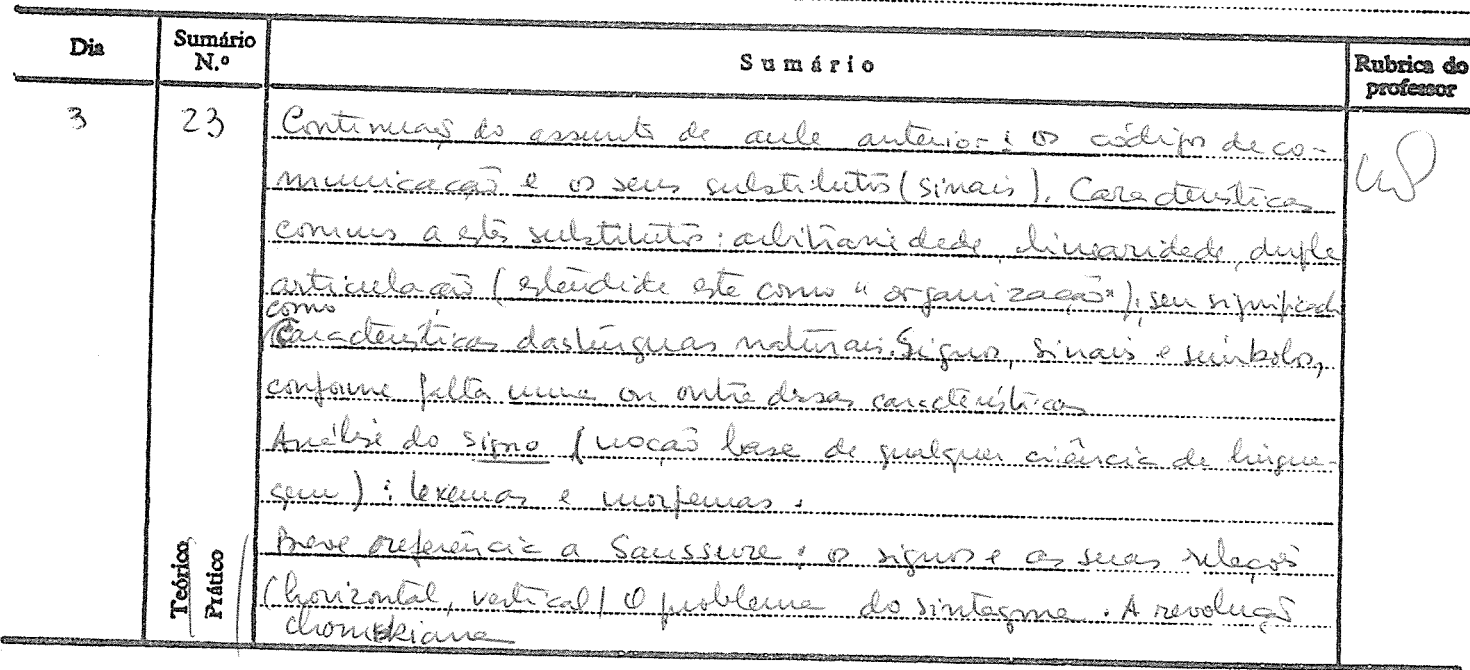 Dia
Sumário N.º
Sumário
Rubrica do professor
3
23
Continuação do assunto da aula anterior: os códigos de co-
municação e os seus substitutos (sinais). Características
comuns a estes substitutos: arbitrariedade, linearidade, dupla
articulação (estendida esta como "organização"); seu significado
como
características das línguas naturais. Signos, sinais e símbolos,
conforme falta uma ou outra dessas características
Análise do signo (noção base de qualquer ciência da lingua-
gem): lexemas e morfemas.
Breve referência a Saussure: os signos e as suas relações
(horizontal, vertical) O problema do sintagma. A revolução
chomskiana
Teórico
Prático